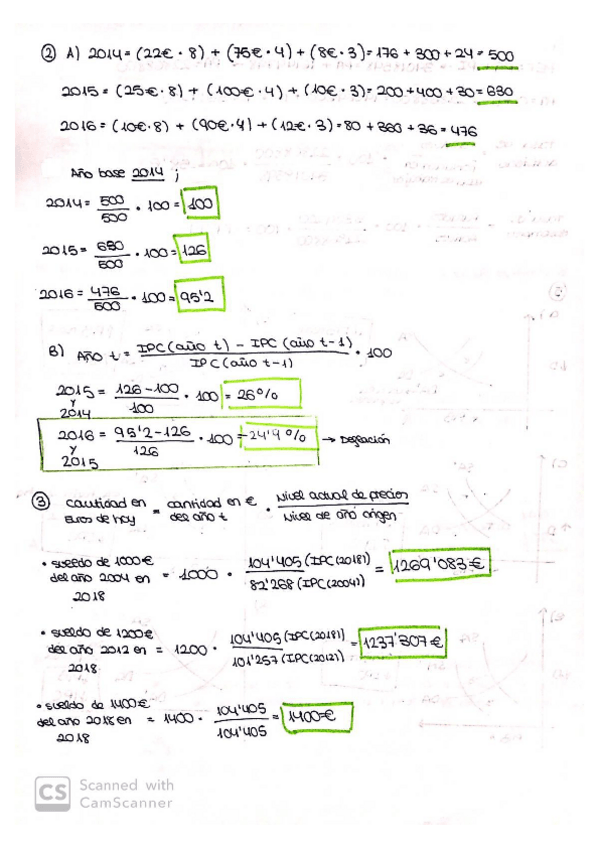 ② A) 2014 = (22€ · 8) + (75€ · 4) + (8€ · 3) = 176 + 300 + 24 = 500
2015 = (25€ · 8) + (100€ · 4) + (10€ · 3) = 200 + 400 + 30 = 630
2016 = (10€ · 8) + (90€ · 4) + (12€ · 3) = 80 + 360 + 36 = 476
Año base 2014 ;
2014 = 500/500 · 100 = 100
2015 = 630/500 · 100 = 126
2016 = 476/500 · 100 = 95'2
B) Año t = IPC (año t) - IPC (año t-1) / IPC (año t-1) · 100
2015 y 2014 = 126 - 100 / 100 · 100 = 26%
2016 y 2015 = 95'2 - 126 / 126 · 100 = -24'4 % → Deflación
③ cantidad en Euros de hoy = cantidad en € del año t · Nivel actual de precios / Nivel de año origen
• sueldo de 1000€ del año 2004 en 2018 = 1000 · 104'405 (IPC(2018)) / 82'268 (IPC(2004)) = 1269'083€
• sueldo de 1200€ del año 2012 en 2018 = 1200 · 104'405 (IPC(2018)) / 101'257 (IPC(2012)) = 1237'307€
• sueldo de 1400€ del año 2018 en 2018 = 1400 · 104'405 / 104'405 = 1400€
CS Scanned with
CamScanner